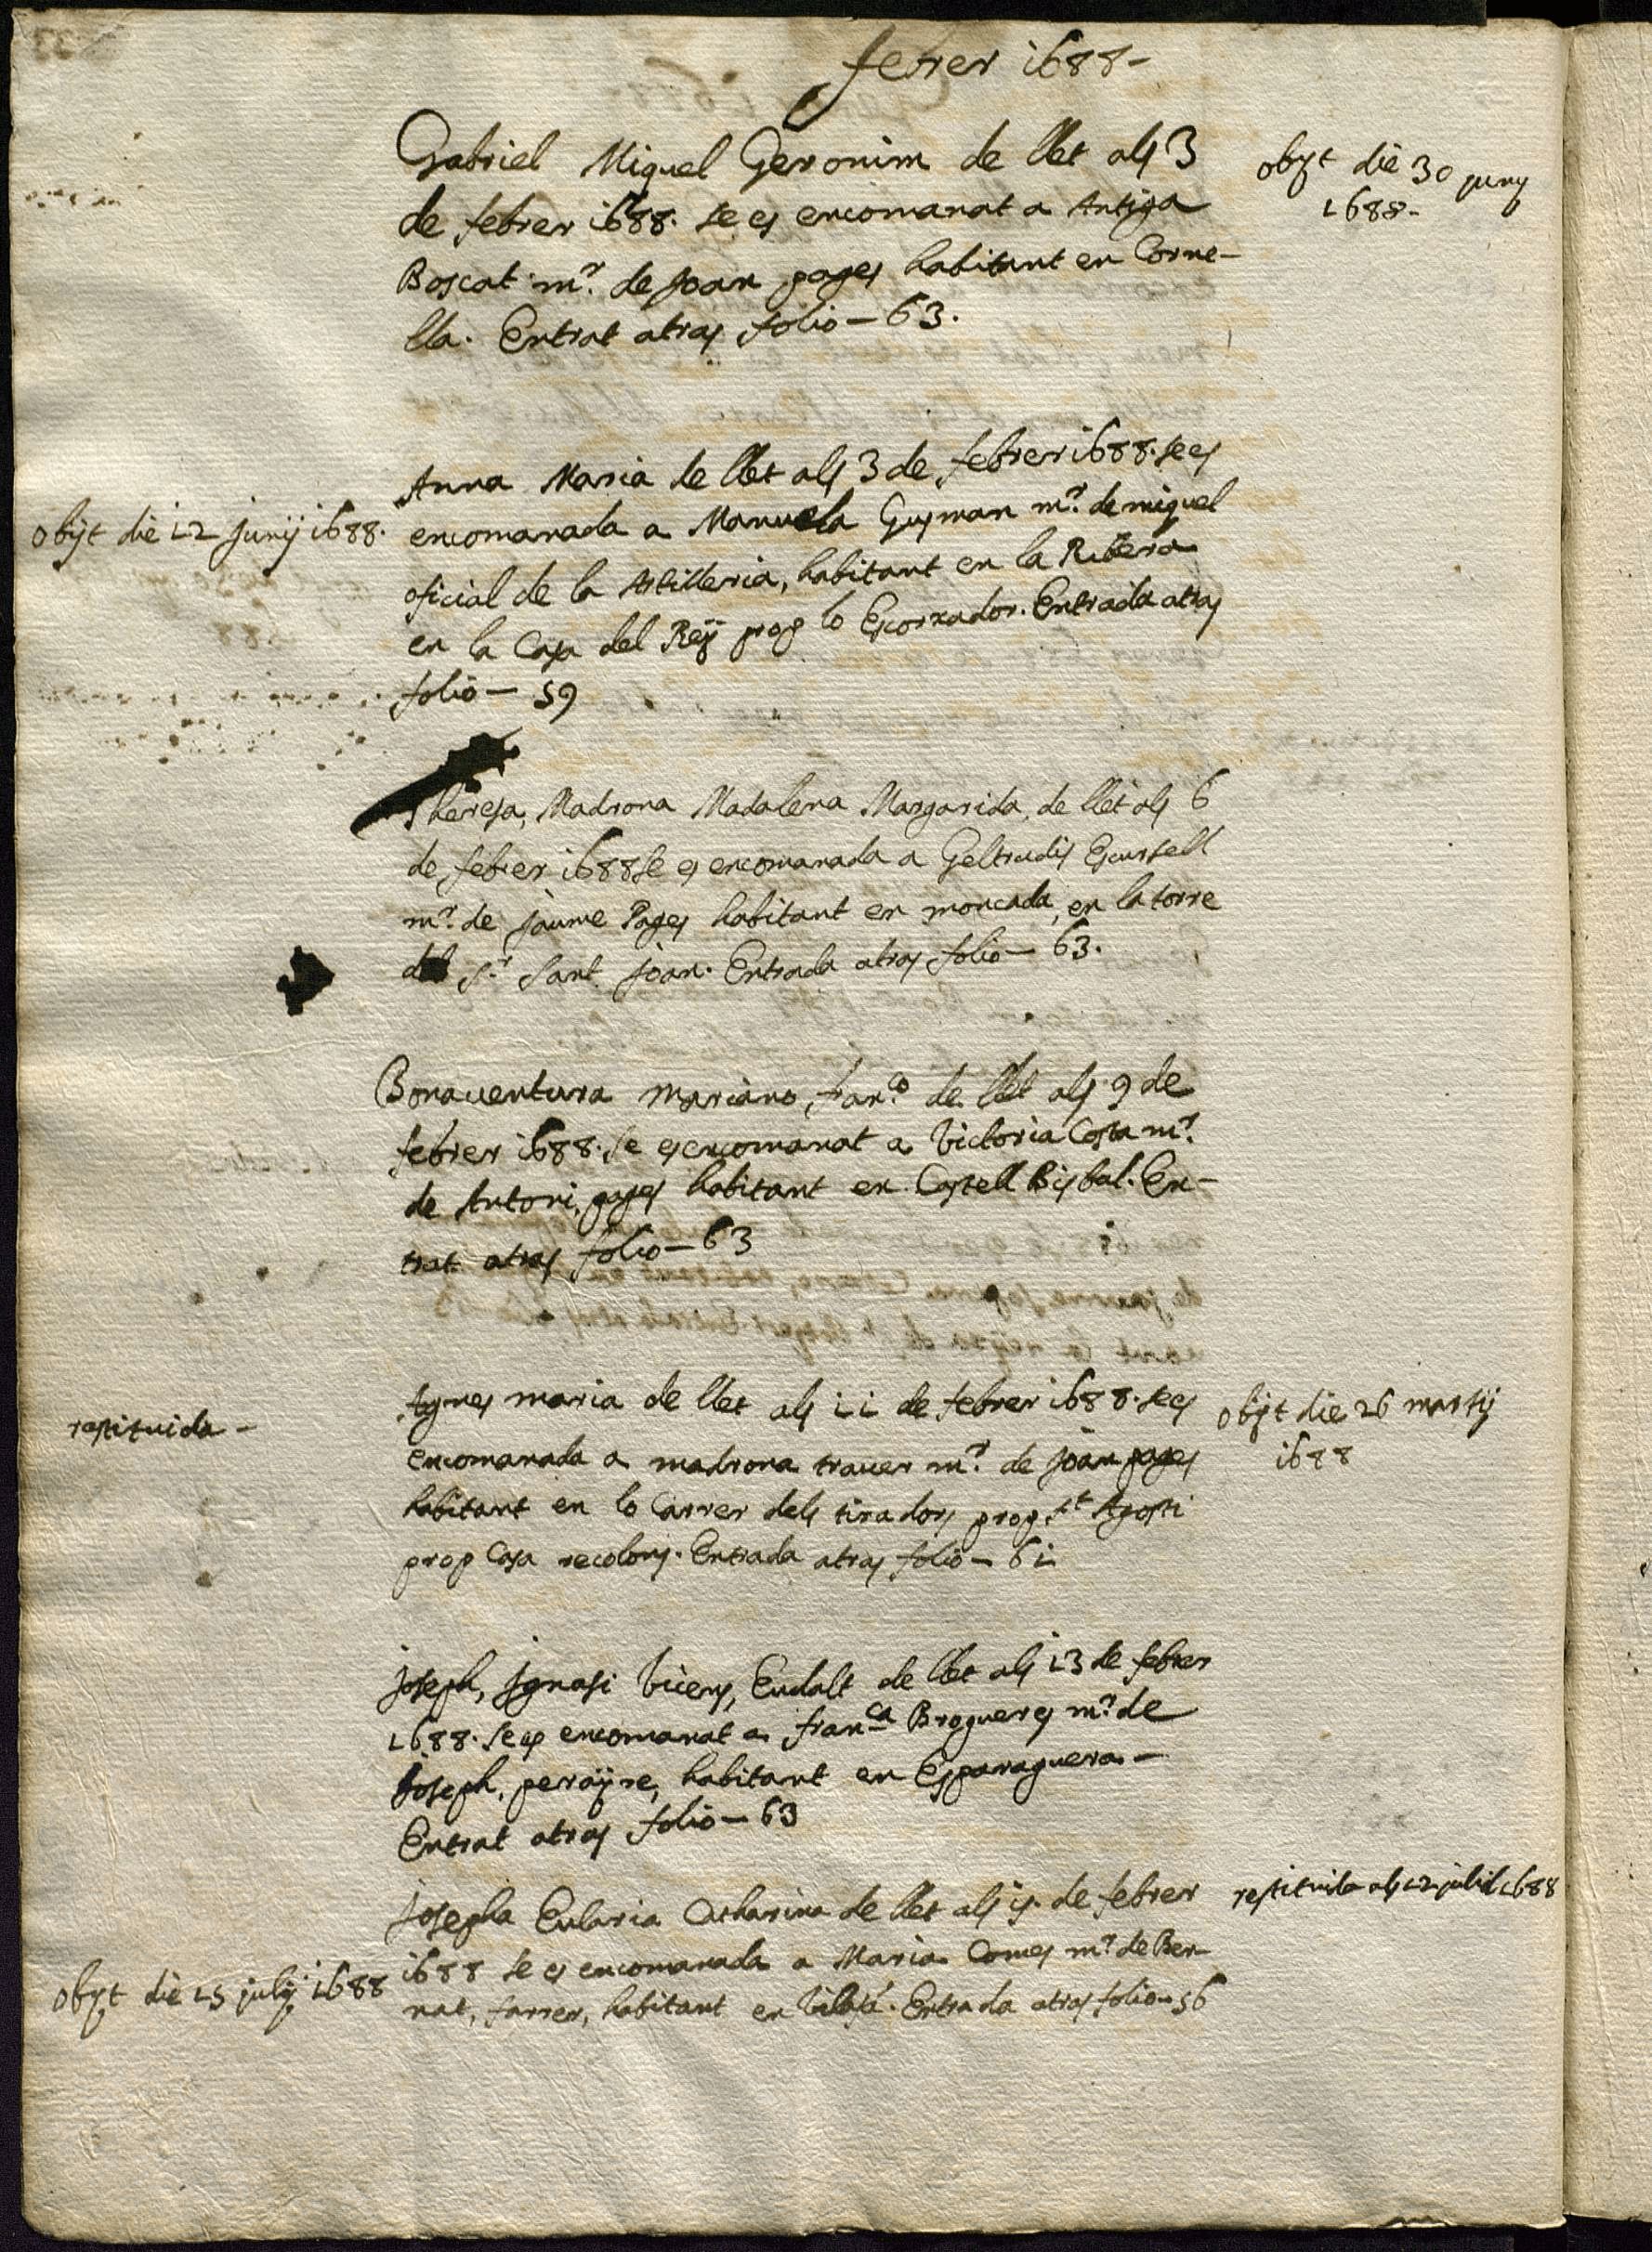 febrer 1688-
Gabriel Miquel Geronim de llet als 3
de febrer 1688. se es encomanat a Antiga
Boscat mr. de Joan pages habitant en Corne-
lla. Entrat atras folio - 63.
obijt die 30 juny
1688-
Anna Maria de llet als 3 de febrer 1688. se es
encomanada a Manuela Gusman mr. de miquel
oficial de la Artilleria, habitant en la Ribera
en la Casa del Reÿ prop lo Escorxador. Entrada atras
folio - 59
obijt die 12 junij 1688.
Theresa, Madrona Madalena Margarida, de llet als 6
de febrer 1688 se es encomanada a Geltrudis Escursell
mr. de jaume Pages habitant en moncada, en la torre
del Sr. Sant Joan. Entrada atras folio - 63.
Bonaventura Mariano, franco. de llet als 9 de
febrer 1688. se es encomanat a Victoria Costa mr.
de Antoni, pages habitant en Castell Bisbal. En-
trat atras folio - 63
restituida -
Agnes maria de llet als 11 de febrer 1688. se es
encomanada a madrona traver mr. de joan pages
habitant en lo Carrer dels tiradors prop St Agosti
prop Casa recolons. Entrada atras folio - 61
obijt die 26 martij
1688
Joseph, Ignasi Vicens, Eudalt de llet als 13 de febrer
1688. se es encomanat a franca Brogueres mr. de
Joseph, peraÿre, habitant en Esparaguera -
Entrat atras folio - 63
Josepha Eularia Catharina de llet als 15. de febrer
1688 se es encomanada a Maria Comes mr. de Ber-
nat, farrer, habitant en Vilafá. Entrada atras folio - 56
restituida als 12 juliol 1688
obijt die 15 julij 1688